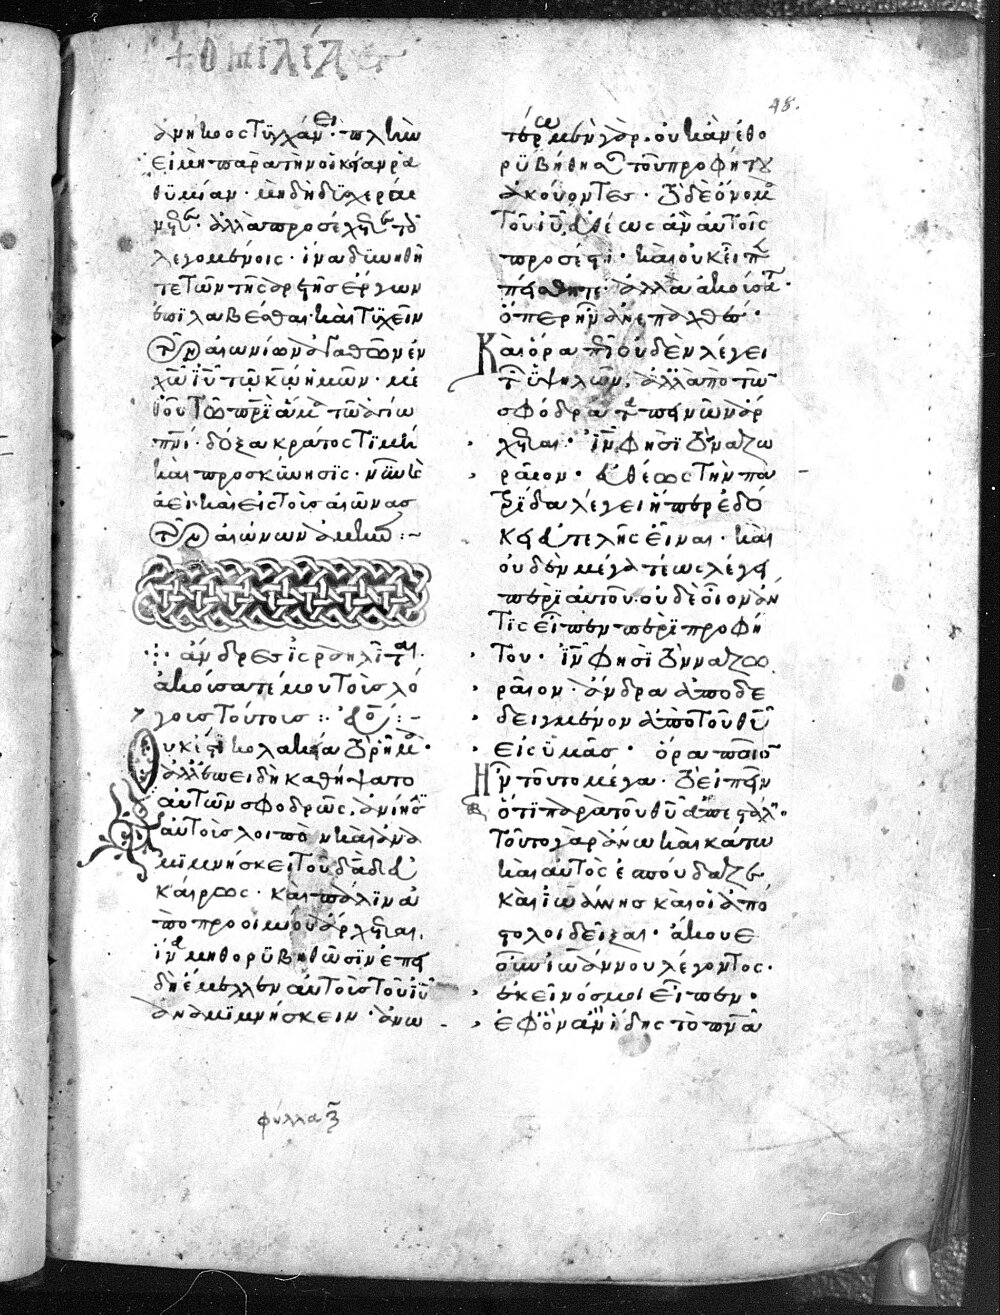 + Ὁμιλία ϛ
48.
ἀνήκοος τυγχάνει· πλὴν
εἰ μὴ παρὰ τὴν οἰκείαν ῥα
θυμίαν· μὴ δὴ δυσχεραί
νητε· ἀλλὰ προσέχητε τοῖς
λεγομένοις· ἵνα δυνηθῆ
τε τῶν τῆς ἀρετῆς ἔργων
ἐπιλαβέσθαι καὶ τυχεῖν
τῶν αἰωνίων ἀγαθῶν ἐν
χω ιυ τῶ κω ἡμῶν· με
θ οὗ τῶ πρι ἅμα τῶ ἁγίω
πνι· δόξα κράτος τιμὴ
καὶ προσκύνησις· νῦν καὶ
ἀεὶ καὶ εἰς τοὺς αἰῶνας
τῶν αἰώνων ἀμήν :~
ἄνδρες ἰσραηλῖται
ἀκούσατέ μου τοὺς λό
γους τούτους :·
Οὐκ ἔστι κολακεία τὸ ῥῆμα·
ἀλλ' ἐπειδὴ καθήψατο
αὐτῶν σφοδρῶς, ἀνίησιν
αὐτοὺς λοιπὸν καὶ ἀνα
μιμνήσκει τοῦ δαδ εὐ
καίρως· καὶ πάλιν ἀ
πὸ προοιμίου ἄρχεται,
ἵνα μὴ θορυβηθῶσιν ἐπει
δὴ ἔμελλεν αὐτοὺς τοῦ ιυ
ἀναμιμνήσκειν· ἀνω
τέρω μὲν γὰρ. οὐκ ἂν ἐθο
ρυβήθησαν τοῦ προφήτου
ἀκούοντες· τὸ δὲ ὄνομα
τοῦ ιυ εὐθέως ἂν αὐτοῖς
προσέστη· καὶ οὐκ εἶπε
πείσθητε· ἀλλὰ ἀκούσατε·
ὅπερ ἦν ἀνεπαχθές·
Καὶ ὅρα πῶς οὐδὲν λέγει
τῶν ὑψηλῶν, ἀλλ' ἀπὸ τῶν
σφόδρα ταπεινῶν ἄρ
χεται· ιν φησὶ τὸν ναζω
ραῖον· εὐθέως τὴν πα
τρίδα λέγει ἥπερ ἐδό
κει εὐτελὴς εἶναι· καὶ
οὐδὲν μέγα τέως λέγει
περὶ αὐτοῦ. οὐδὲ οἷον ἄν
τις εἴποι περὶ προφή
του· ιν φησὶ τὸν ναζω
ραῖον· ἄνδρα ἀποδε
δειγμένον ἀπὸ τοῦ θυ
εἰς ὑμᾶς· ὅρα ποῖον
ἦν τοῦτο μέγα· τὸ εἰπεῖν
ὅτι παρὰ τοῦ θυ ἀπέσταλται·
τοῦτο γὰρ ἄνω καὶ κάτω
καὶ αὐτὸς ἐσπούδαζε
καὶ ἰωάννης καὶ οἱ ἀπό
στολοι δεῖξαι· ἄκουε
οὖν ἰωάννου λέγοντος·
ἐκεῖνός μοι εἶπεν·
ἐφ' ὃν ἂν ἴδης τὸ πνα
φύλλα ξ